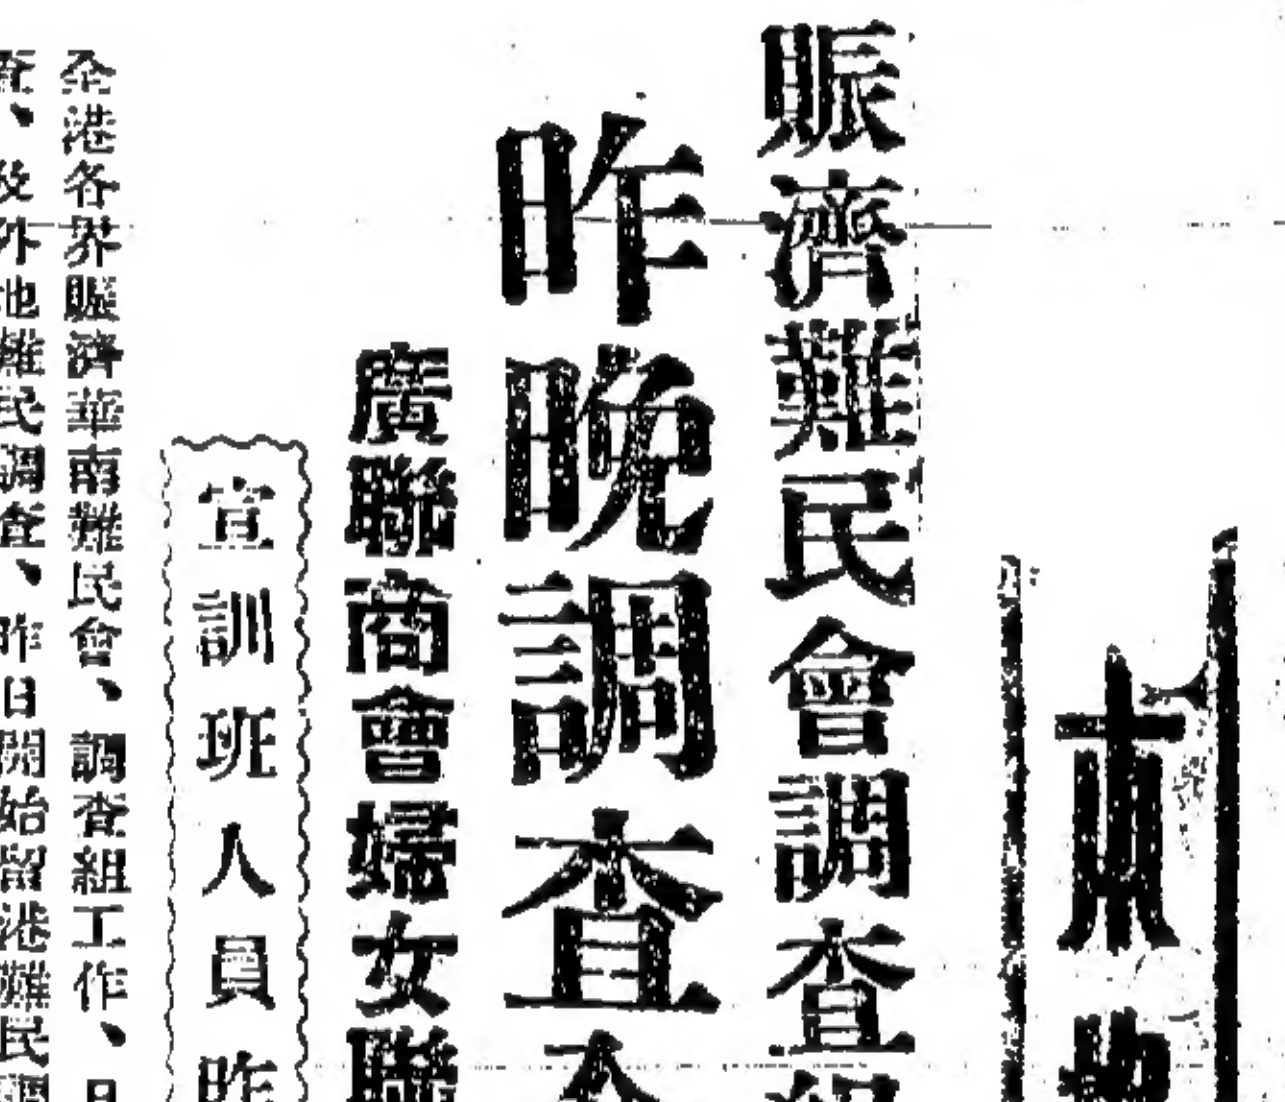 本地
賑濟難民會調查組
昨晚調查
廣聯商會婦女聯
宣訓班人員昨
全港各界賑濟華南難民會、調查組工作、日
查、及外地難民調查、昨日開始留港難民調